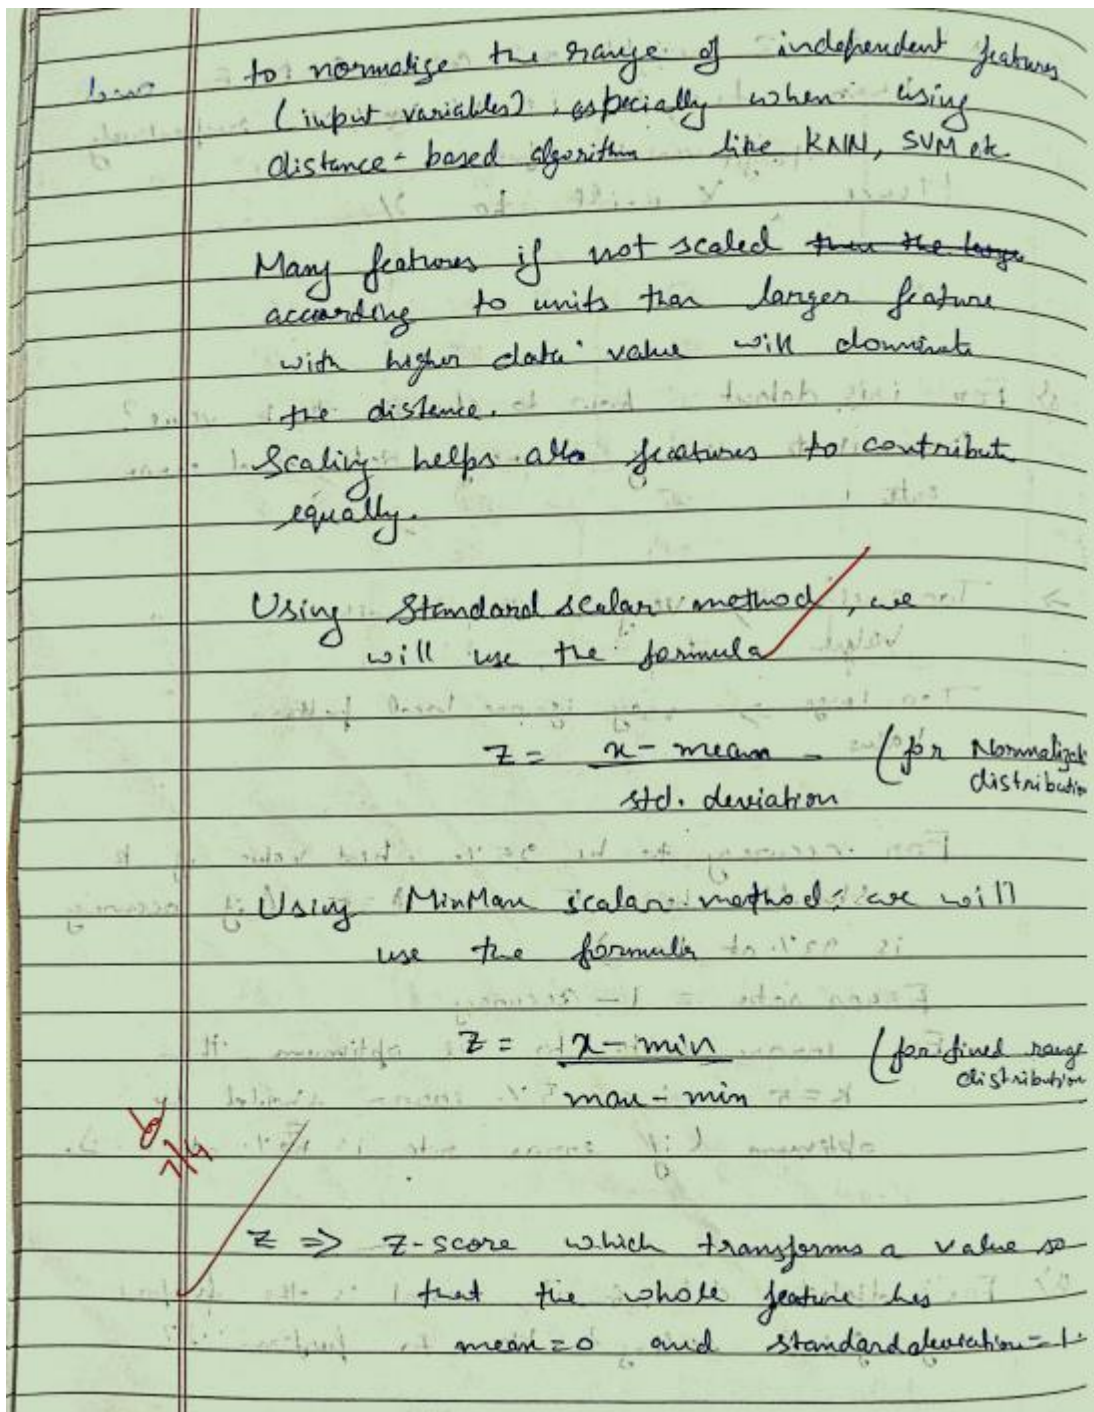 to normalize the range of independent features
(input variables), especially when using
distance-based algorithm like KNN, SVM etc.
Many features if not scaled then the large
according to units than larger feature
with higher data value will dominate
the distence.
Scaling helps all features to contribute
equally.
Using Standard scalar method, we
will use the formula
z = x - mean (for Normalized
std. deviation distribution
Using MinMax scalar method, we will
use the formula
z = x - min (for fixed range
max - min distribution
7/4
z => z-score which transforms a value so
that the whole feature has
mean=0 and standard deviation=1.